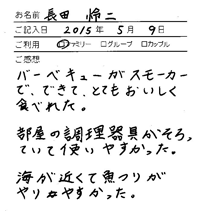 お名前 長田 惇二
ご記入日 2015年 5月 9日
ご利用 ☑ファミリー □グループ □カップル
ご感想
バーベキューがスモーカー
で、できて、とてもおいしく
食べれた。
部屋の調理器具がそろっ
ていて使いやすかった。
海が近くて魚つりが
やりやすかった。